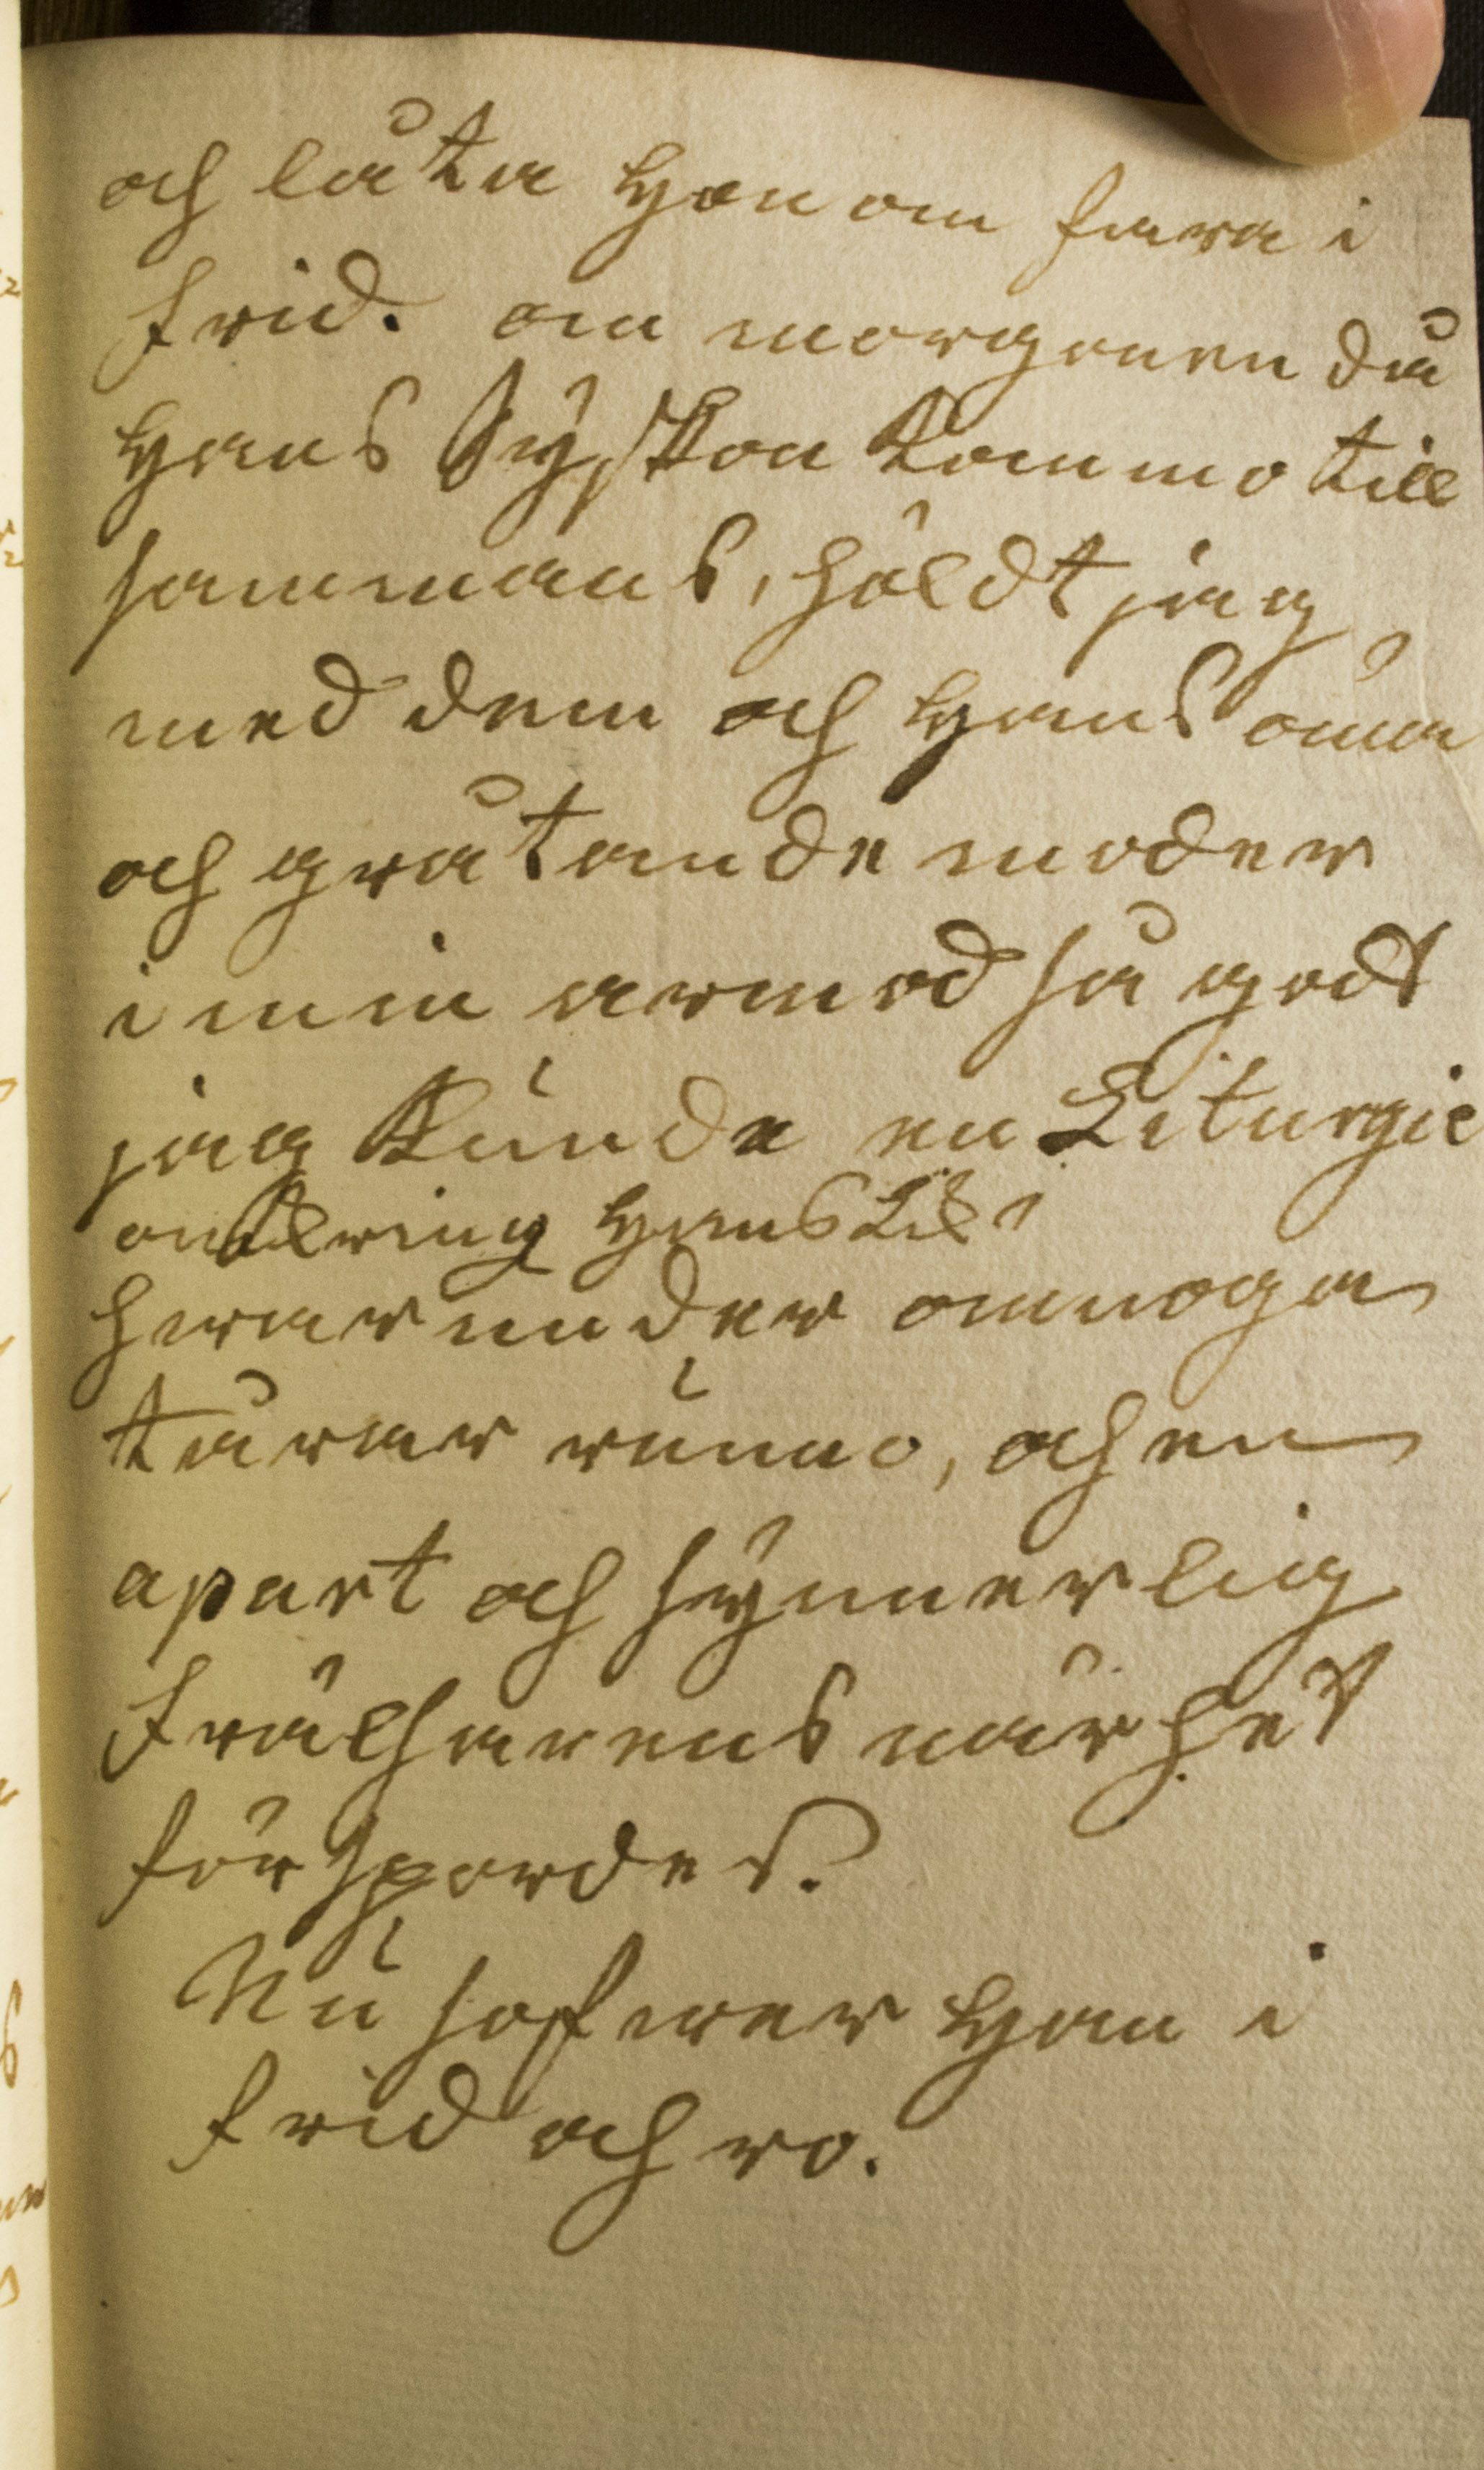 och låta honom fara i
frid. om morgonen då
hans Syskon kommo till
sammans, höldt jag
med dem och hans ömma
och gråtande moder
i min armod så godt
jag kunde en Liturgie
omkring hans Lik
hwarunder omnoga
tårar runno, och en
apart och synnerlig
Frälsarens närhet
förspordes.
Nu sofwer han i
frid och ro.